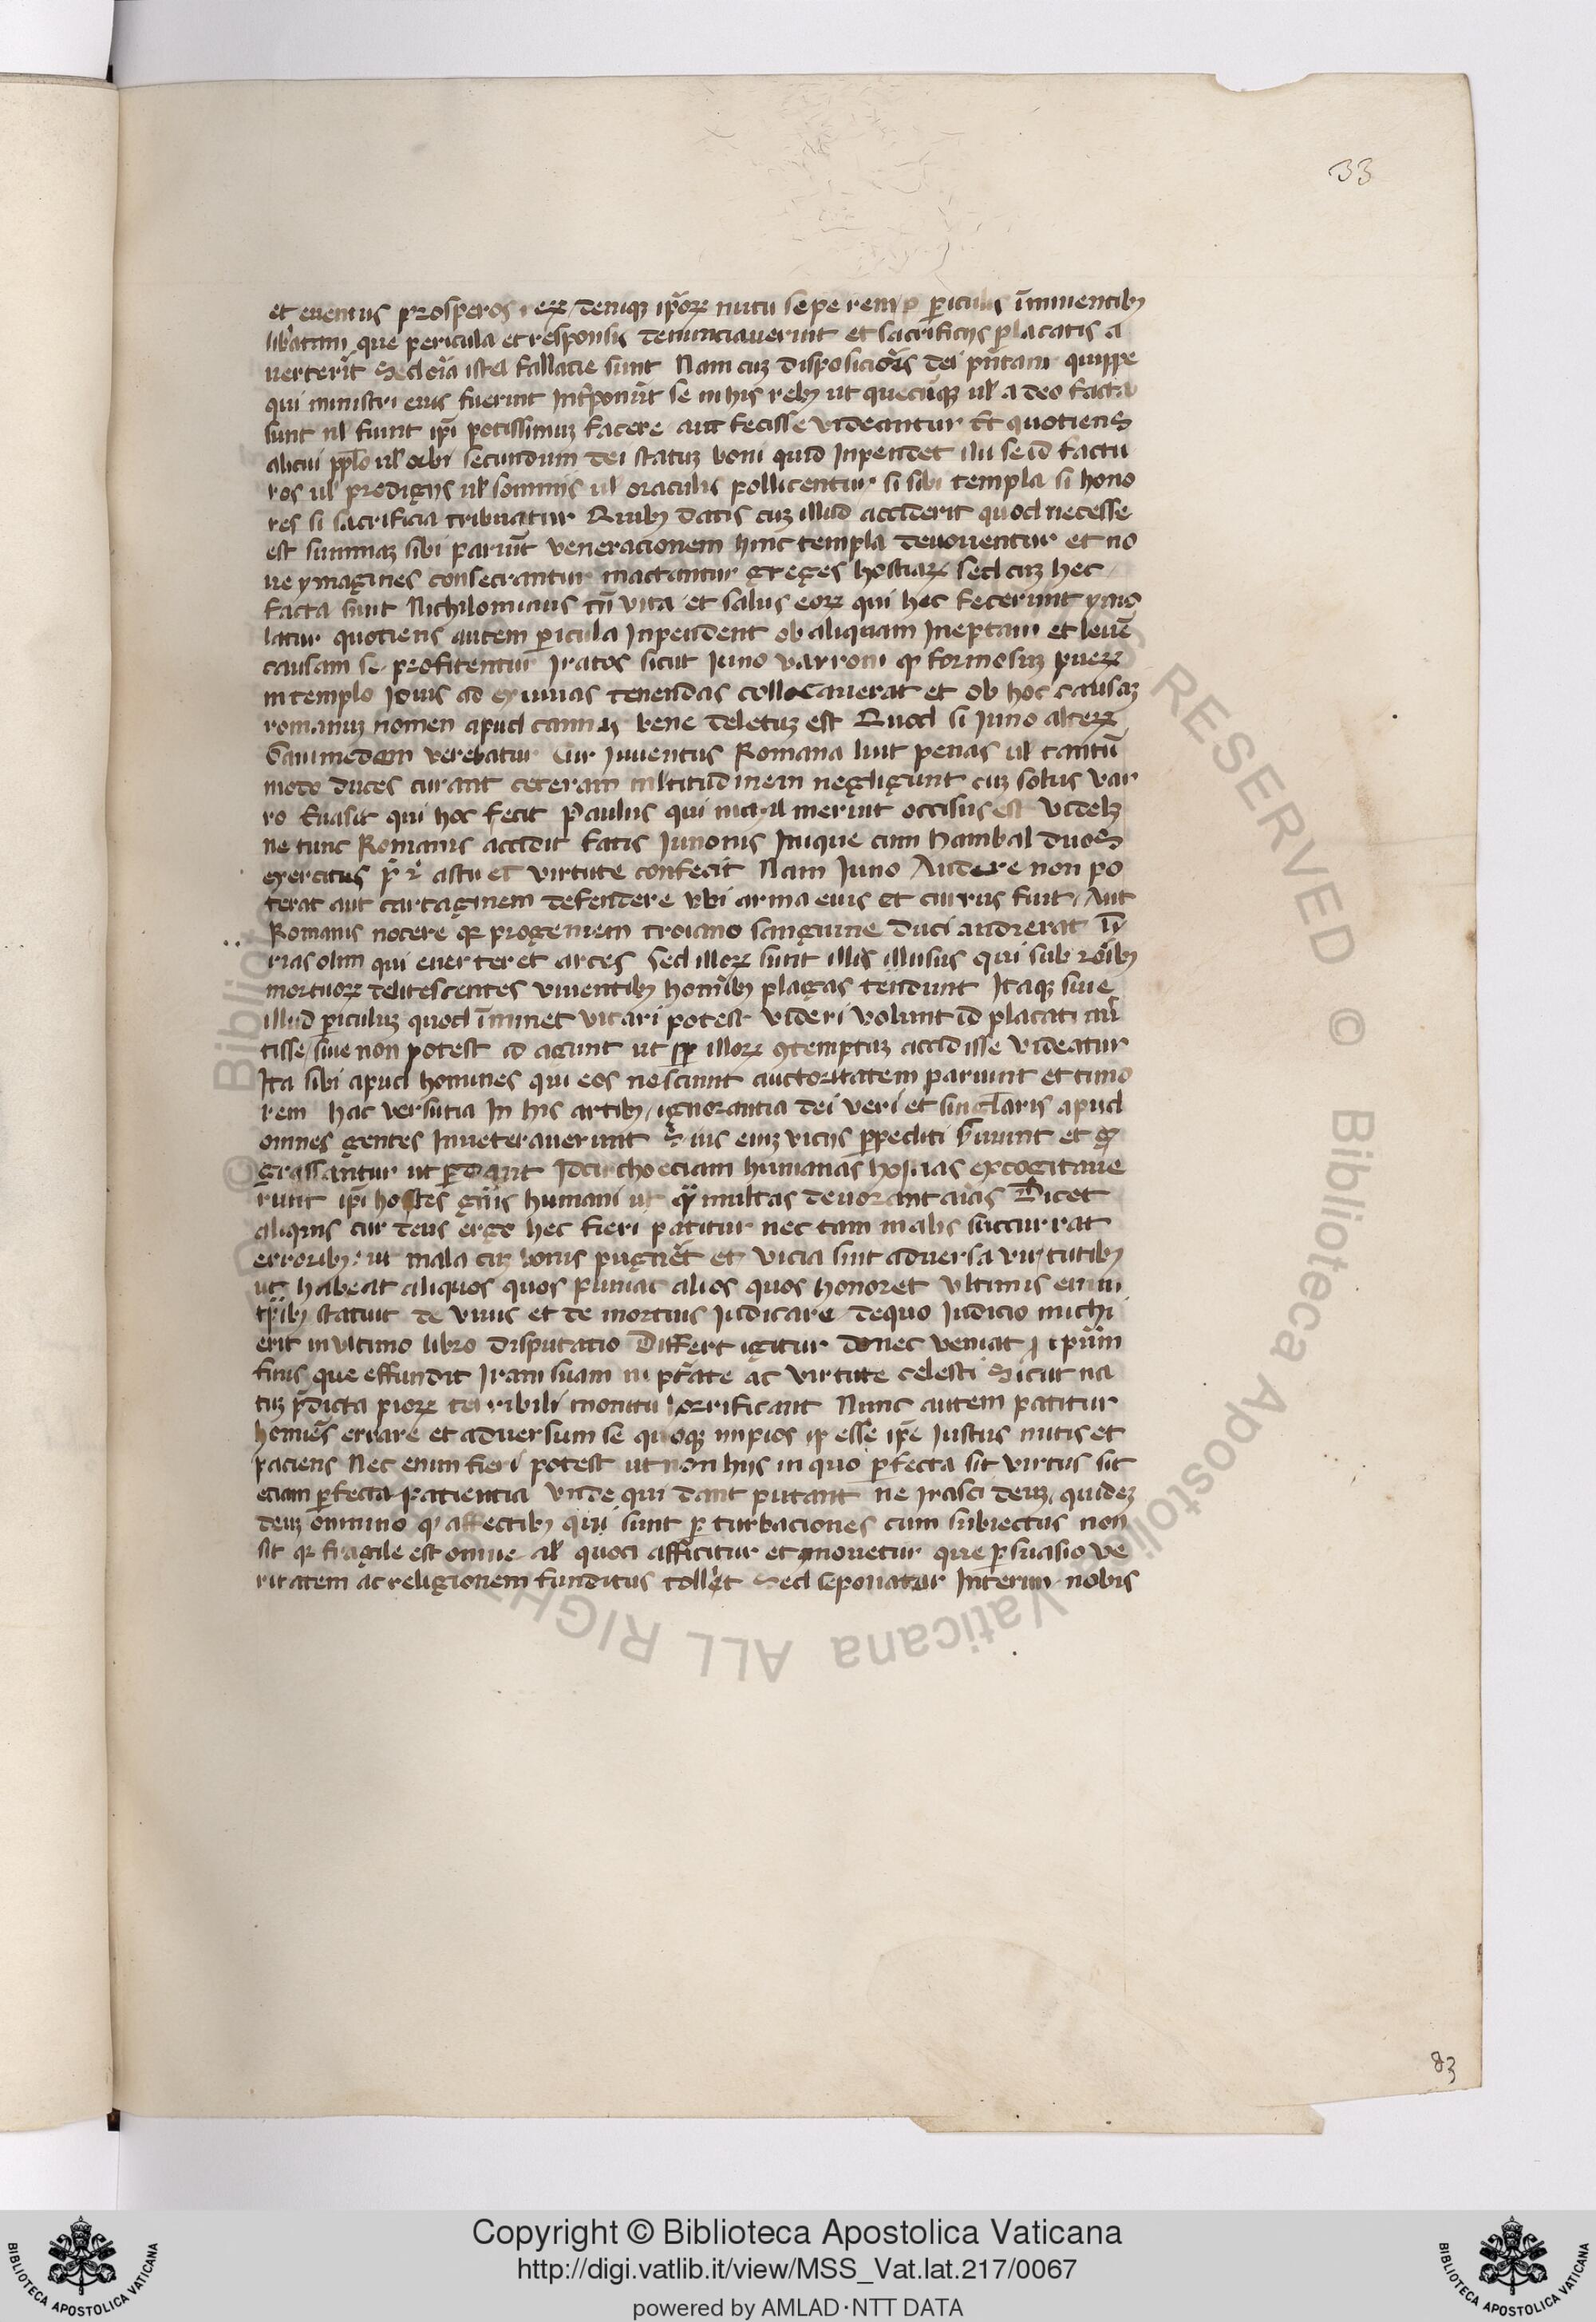 33
et euentus prosperos rerꝝ deniqꝫ ip̄orꝝ nutu sepe remp p̱iculis īminentibꝫ
lib̾atam que pericula et responsis denunciauerint et sacrificijs placatis a
uerterī̾t Sed oīa ista fallacie sunt Nam cuꝫ disposicio̅es dei p̄n̄tant quippe
qui ministri eius fuerint Int̾ponūt se in his rebꝫ ut quecūqꝫ ul̄ a deo facta
sunt ul̄ fiunt ip̄i potissimuꝫ facere aut fecisse uideantur Et quotiens
alicui pp̄lo ul̄ orbi secundum dei statuꝫ boni quid Inpendet illi se id factu
ros ul̄ prodigijs ul̄ somnijs ul̄ oraculis pollicentur si sibi templa si hono
res si sacrificia tribuatur Quibꝫ datis cuꝫ illud acciderit quod necesse
est summaꝫ sibi pariūt ueneracionem hinc templa deuouentur et no
ue ymagines consecrantur mactantur greges hostiarꝝ sed cuꝫ hec
facta sunt Nichilominus tn̄ uita et salus eorꝝ qui hec fecerunt ymo
latur quotiens autem p̱icula Inpendent ob aliquam Ineptam et leuē
causam se profitentur Iratos sicut Iuno uarroni qꝫ formosuꝫ puerꝝ
in templo Iouis ad exuuias tenendas collocauerat et ob hoc causaꝫ
romanuꝫ nomen apud cannas bene deletuꝫ est Quod si Iuno alterꝝ
Ganimedem uerebatur Cur Iuuentus Romana luit penas ul̄ tantū
modo duces curant ceteram multitudinem negligunt cuꝫ solus uar
ro euasit qui hoc fecit Paulus qui nichil meruit occisus est uidelꝫ
ne tunc Romanis accidit fatis Iunonis Inique cum hanibal duos
exercitus astu et uirtute confecit Nam Iuno Audere non po
terat aut cartaginem defendere ubi arma eius et currus fuit Aut
Romanis nocere qꝫ progeniem troiano sanguine duci audierat ty
rias olim qui euerteret arces Sed illorꝝ sunt illis illusus qui sub no̅ībꝫ
mortuorꝝ delitescentes uiuentibꝫ homībꝫ plagas tendunt Itaqꝫ siue
illud p̱iculuꝫ quod īminet uitari potest uideri uolunt id placati
tisse siue non potest id agunt ut illorꝝ ꝯtemptuꝫ accidisse uideatur
Ita sibi apud homines qui eos nesciunt auctoritatem pariunt et timo
rem hac uersutia In his artibꝫ ignorantia dei ueri et singl̄aris apud
omnes gentes Inueterauerunt suis eniꝫ uicijs p̱pediti seuiunt et
grassantur ut p̱dant Idcircho eciam humanas hostias excogitaue
runt ip̄i hostes gn̄is humani ut multas deuorant aīas Dicet
aliquis cur deus ergo hec fieri patitur nec tam malis succurrat
erroribꝫ ut mala cuꝫ bonis pugnēt et uicia sint aduersa uirtutibꝫ
ut habeat aliquos quos puniat alios quos honoret ultimis enim
tp̄ibꝫ statuit de uiuis et de mortuis Iudicare de quo Iudicio michi
erit in ultimo libro disputatio Differt igitur donec ueniat tp̄um
finis que effundit Iram suam in p̄tate ac uirtute celesti Sicut ua
tuꝫ p̄dicta piorꝝ terribili monitu horrificant Nunc autem patitur
homīes errare et aduersum se quoqꝫ impios esse ip̄e Iustus mitis et
paciens Nec enim fieri potest ut non hijs in quo p̱fecta sit uirtus sit
eciam p̱fecta patientia unde qui dant putant ne Irasci deuꝫ quideꝫ
deuꝫ omnino qꝫ affectibꝫ qui sunt p̱turbaciones cum subiectus non
sit qꝫ fragile est omne al̄ quod afficitur et mouetur que p̱suasio ue
ritatem ac religionem funditus tollet Sed seponatur Interim nobis
83
© Biblioteca Apostolica Vaticana ALL RIGHTS RESERVED
Copyright © Biblioteca Apostolica Vaticana
http://digi.vatlib.it/view/MSS_Vat.lat.217/0067
powered by AMLAD·NTT DATA
BIBLIOTECA APOSTOLICA VATICANA
BIBLIOTECA APOSTOLICA VATICANA